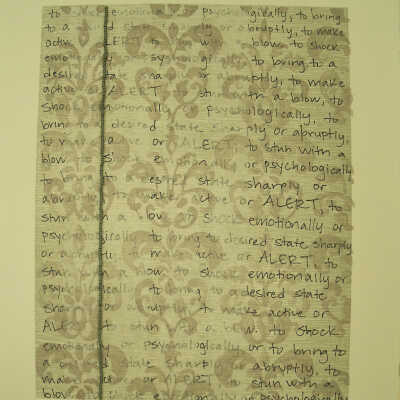 to shock emotionally or psychologically, to bring
to a desired state sharply or abruptly, to make
active or ALERT to stun with a blow, to shock
emotionally or psychologically, to bring to a
desired state sharply or abruptly, to make
active or ALERT, to stun with a blow, to
shock emotionally or psychologically, to
bring to a desired state sharply or abruptly,
to make active or ALERT, to stun with a
blow to shock emotionally or psychologically
to bring to desired state sharply or
abruptly to make active or ALERT, to
stun with a blow to shock emotionally or
psychologically to bring to desired state sharply
or abruptly to make active or ALERT, to
stun with a blow to shock emotionally or
psychologically to bring to a desired state
sharply or abruptly to make active or
ALERT to stun with a blow, to shock
emotionally or psychologically or to bring to
a desired state sharply or abruptly, to
make active or ALERT to stun with a
blow to shock emotionally or psychologically